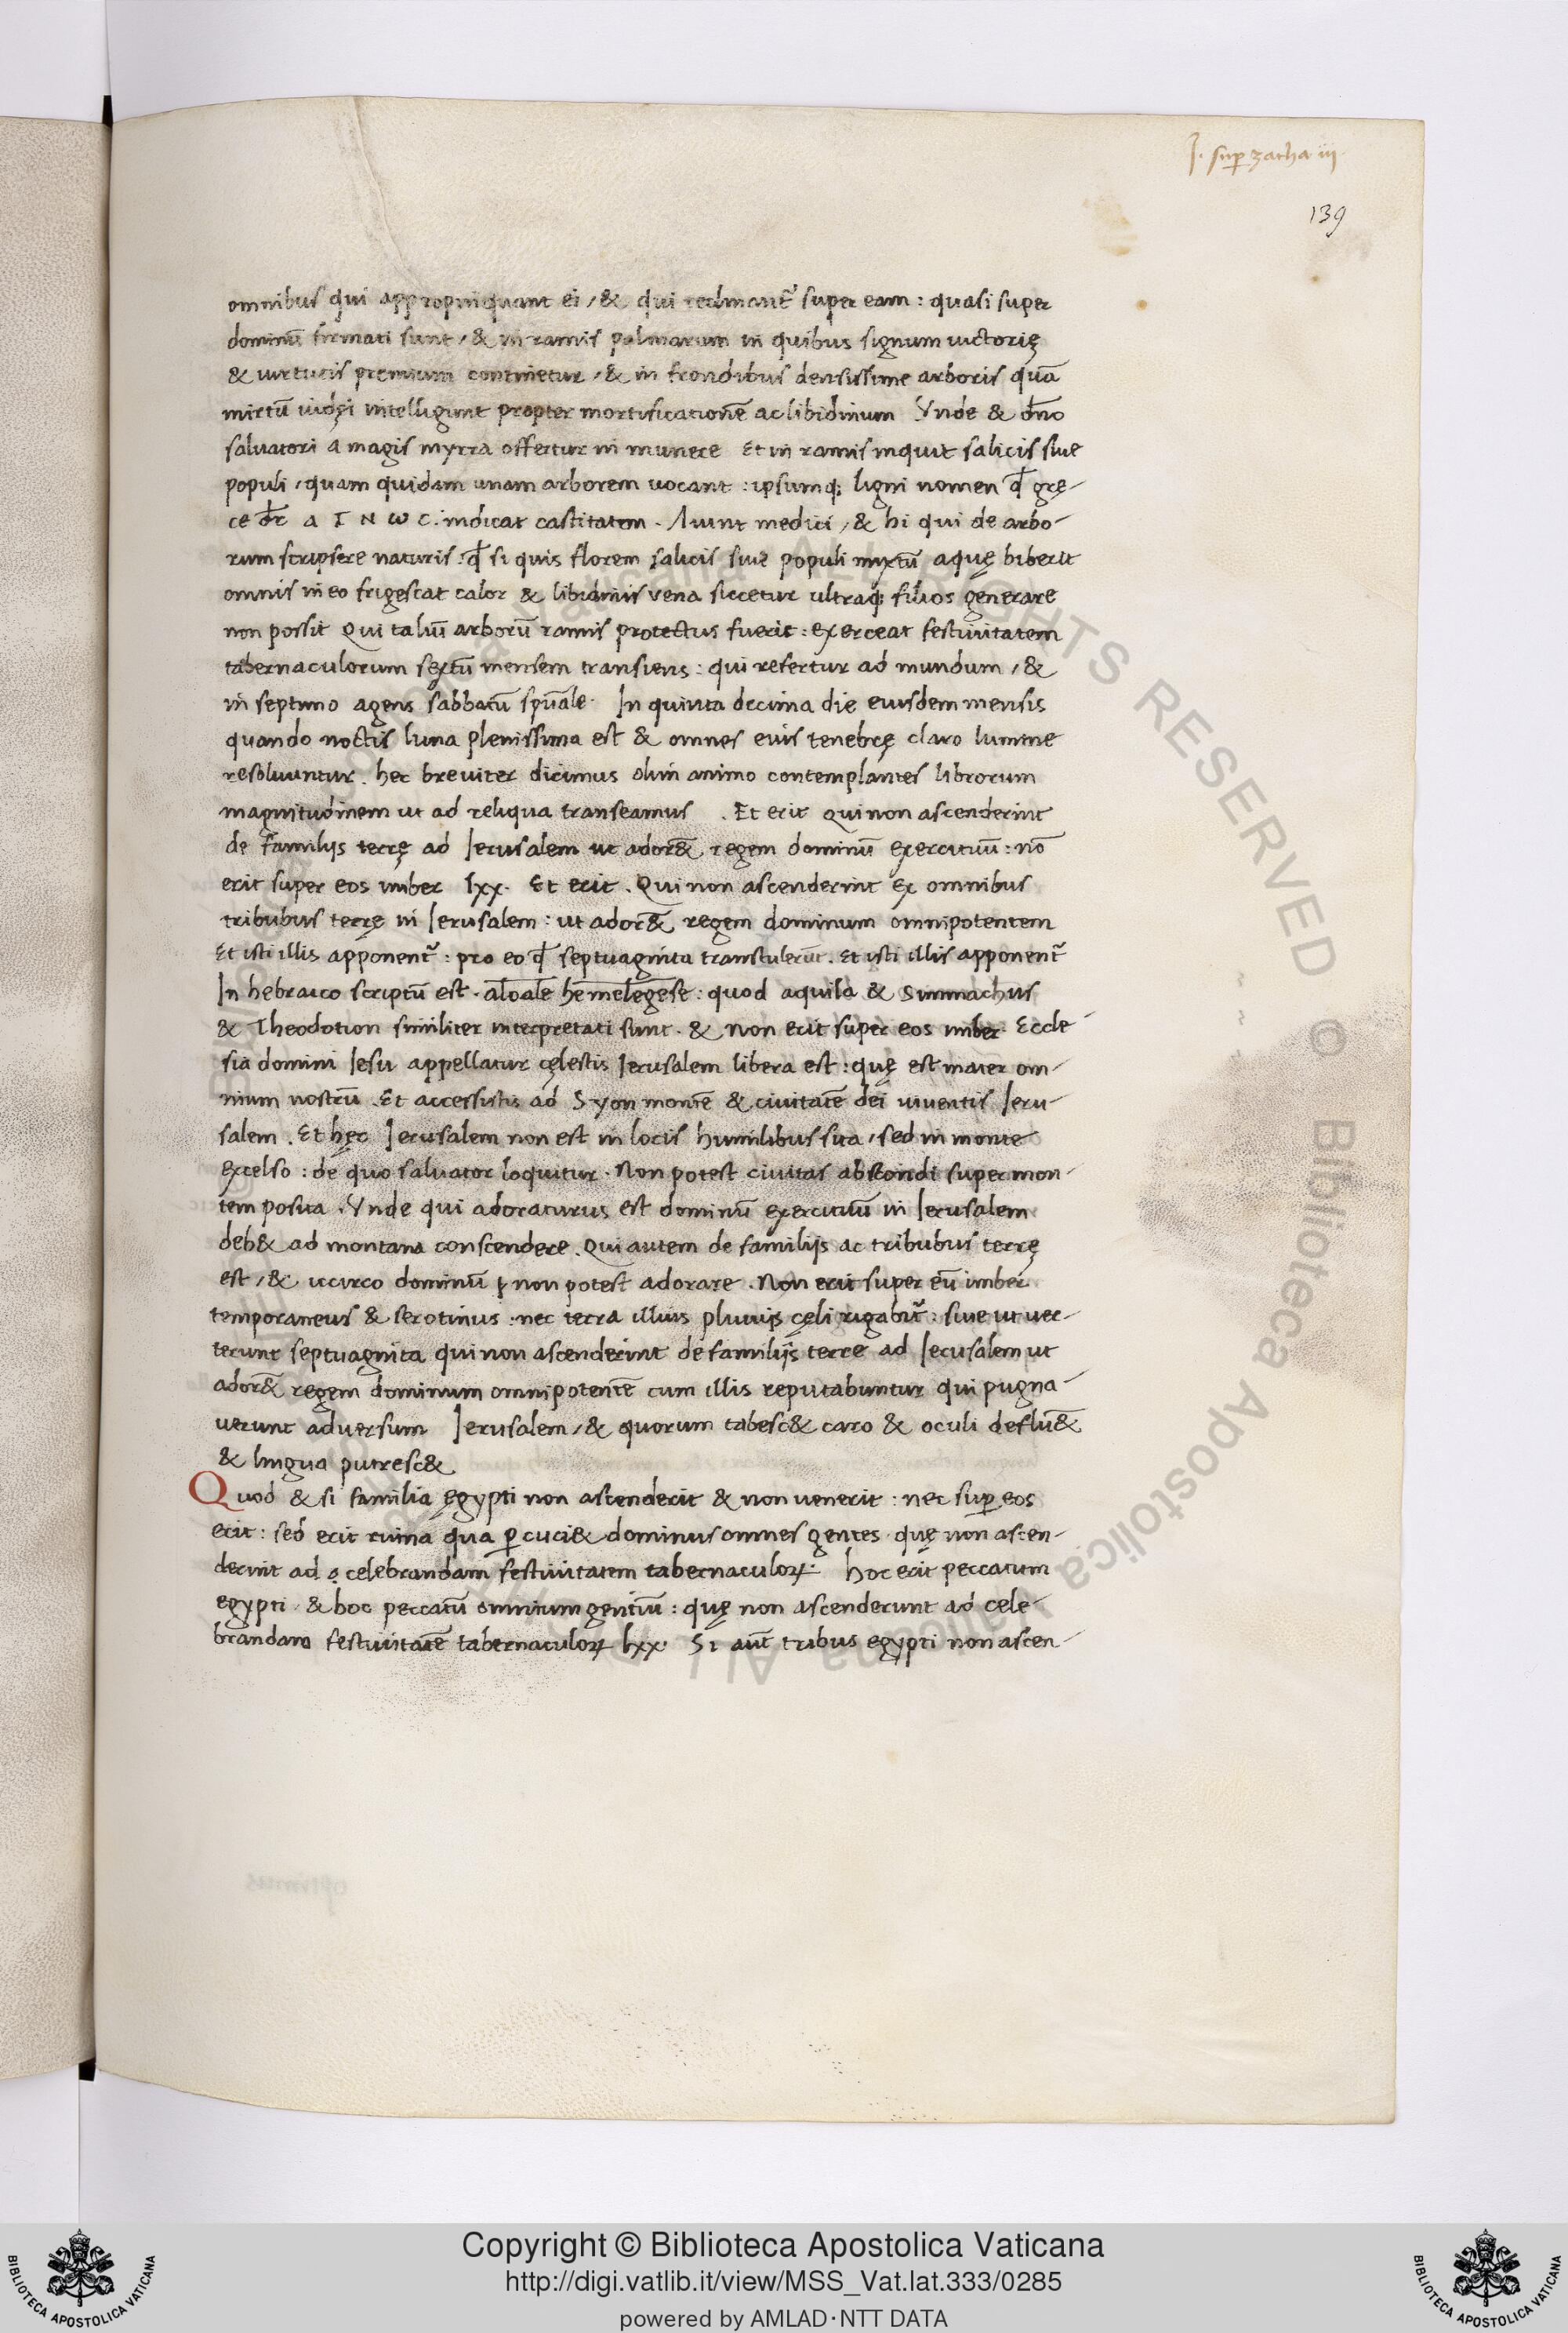 J. sup zacha iij
139
omnibus qui appropinquant ei / & qui reclinant᷑ super eam : quasi super
dominū firmati sunt / & in ramis palmarum in quibus signum uictorię
& uirtutis premium continetur / & in frondibus densissime arboris quā
mirtū iudęi intelligunt propter mortificationē ac libidinum Vnde & dn̄o
saluatori a magis myrra offertur in munere Et in ramis inquit salicis siue
populi / quam quidam unam arborem uocant : ipsumq; ligni nomen qđ grę-
ce dr̄ a Γ N ω C . indicat castitatem . Aiunt medici / & hi qui de arbo-
rum scripsere naturis : qđ si quis florem salicis siue populi mixtū aquę biberit
omnis in eo frigescat calor & libidinis vena siccetur ultraq; filios generare
non possit Qui taliū arborū ramis protectus fuerit : exerceat festiuitatem
tabernaculorum sextū mensem transiens : qui refertur ad mundum / &
in septimo agens sabbatū spūale . In quinta decima die eiusdem mensis
quando noctis luna plenissima est & omnes eius tenebrę claro lumine
resoluuntur . hec breuiter dicimus olim animo contemplantes librorum
magnitudinem ut ad reliqua transeamus . Et erit qui non ascenderint
de familijs terrę ad Jerusalem ut ador&̄ regem dominū exercituū : nō
erit super eos imber lxx . Et erit . Qui non ascenderint ex omnibus
tribubus terrę in Jerusalem : ut ador&̄ regem dominum omnipotentem
Et isti illis apponent᷑ : pro eo qđ septuaginta transtulerūt . Et isti illis apponent᷑
In hebraico scriptū est . aloale hemelegese : quod aquila & Simmachus
& Theodotion similiter interpretati sunt . & non erit super eos imber . Eccle-
sia domini Iesu appellatur cęlestis Jerusalem libera est : quę est mater om-
nium nostrū . Et accessistis ad Syon montē & ciuitatē dei uiuentis Jeru-
salem . Et hęc Jerusalem non est in locis humilibus sita / sed in monte
excelso : de quo saluator loquitur . Non potest ciuitas abscondi super mon-
tem posita . Vnde qui adoraturus est dominū exercituū in Jerusalem
deb& ad montana conscendere . Qui autem de familijs ac tribubus terrę
est / & iccirco dominū non potest adorare . Non erit super eū imber
temporaneus & serotinus : nec terra illius pluuijs cęli rigabit᷑ : siue ut uer-
terunt septuaginta qui non ascenderint de familijs terre ad Jerusalem ut
ador&̄ regem dominum omnipotentē cum illis reputabuntur qui pugna-
uerunt aduersum Jerusalem / & quorum tabesc& caro & oculi deflu&̄
& lingua putresc&
Quod & si familia ęgypti non ascenderit & non uenerit : nec sup eos
erit : sed erit ruina qua pcuci& dominus omnes gentes quę non ascen-
derint ad celebrandam festiuitatem tabernaculoꝝ . hoc erit peccatum
egypti / & hoc peccatū omnium gentiū : quę non ascenderunt ad cele-
brandam festiuitatē tabernaculoꝝ lxx . Si aūt tribus egypti non ascen-
Copyright © Biblioteca Apostolica Vaticana
http://digi.vatlib.it/view/MSS_Vat.lat.333/0285
powered by AMLAD·NTT DATA